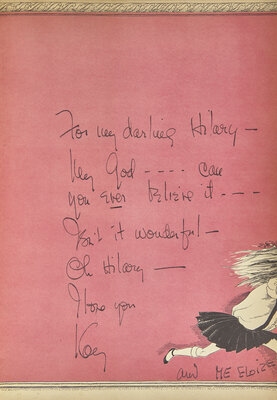 For my darling Hilary –
My God ---- can
you ever believe it ----
Isn't it wonderful –
Oh Hilary —
I love you
Kay
and ME ELOIZE